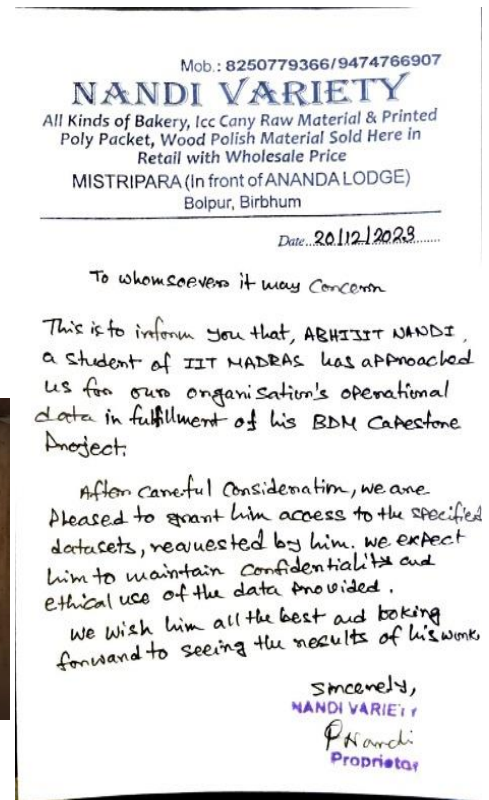 Mob.: 8250779366/9474766907
NANDI VARIETY
All Kinds of Bakery, Icc Cany Raw Material & Printed
Poly Packet, Wood Polish Material Sold Here in
Retail with Wholesale Price
MISTRIPARA (In front of ANANDA LODGE)
Bolpur, Birbhum
Date..20/12/2023........
To whomsoever it may Concern
This is to inform you that, ABHIJIT NANDI,
a student of IIT MADRAS has approached
us for our organisation's operational
data in fulfillment of his BDM Capestone
Project.
After careful Consideration, we are
pleased to grant him access to the specified
datasets, requested by him. we expect
him to maintain confidentiality and
ethical use of the data provided.
we wish him all the best and looking
forward to seeing the results of his work.
Sincerely,
NANDI VARIETY
PNandi
Proprietor